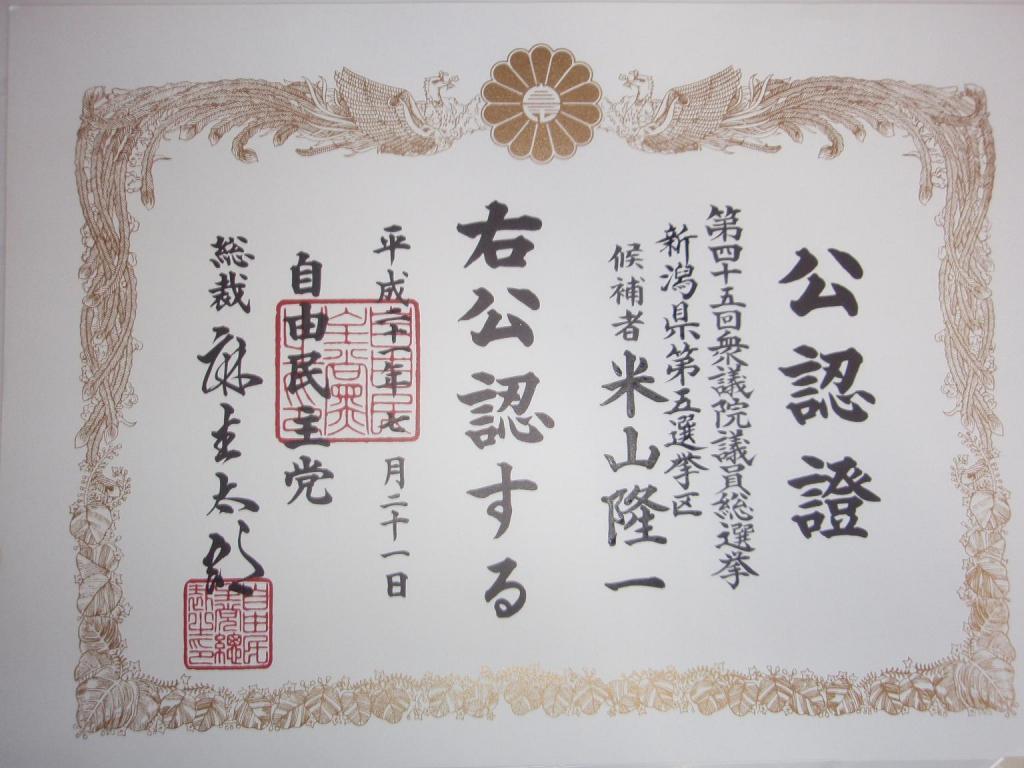 公認證
第四十五回衆議院議員総選挙
新潟県第五選挙区
候補者 米山隆一
右公認する
平成二十一年七月二十一日
自由民主党
総裁 麻生太郎